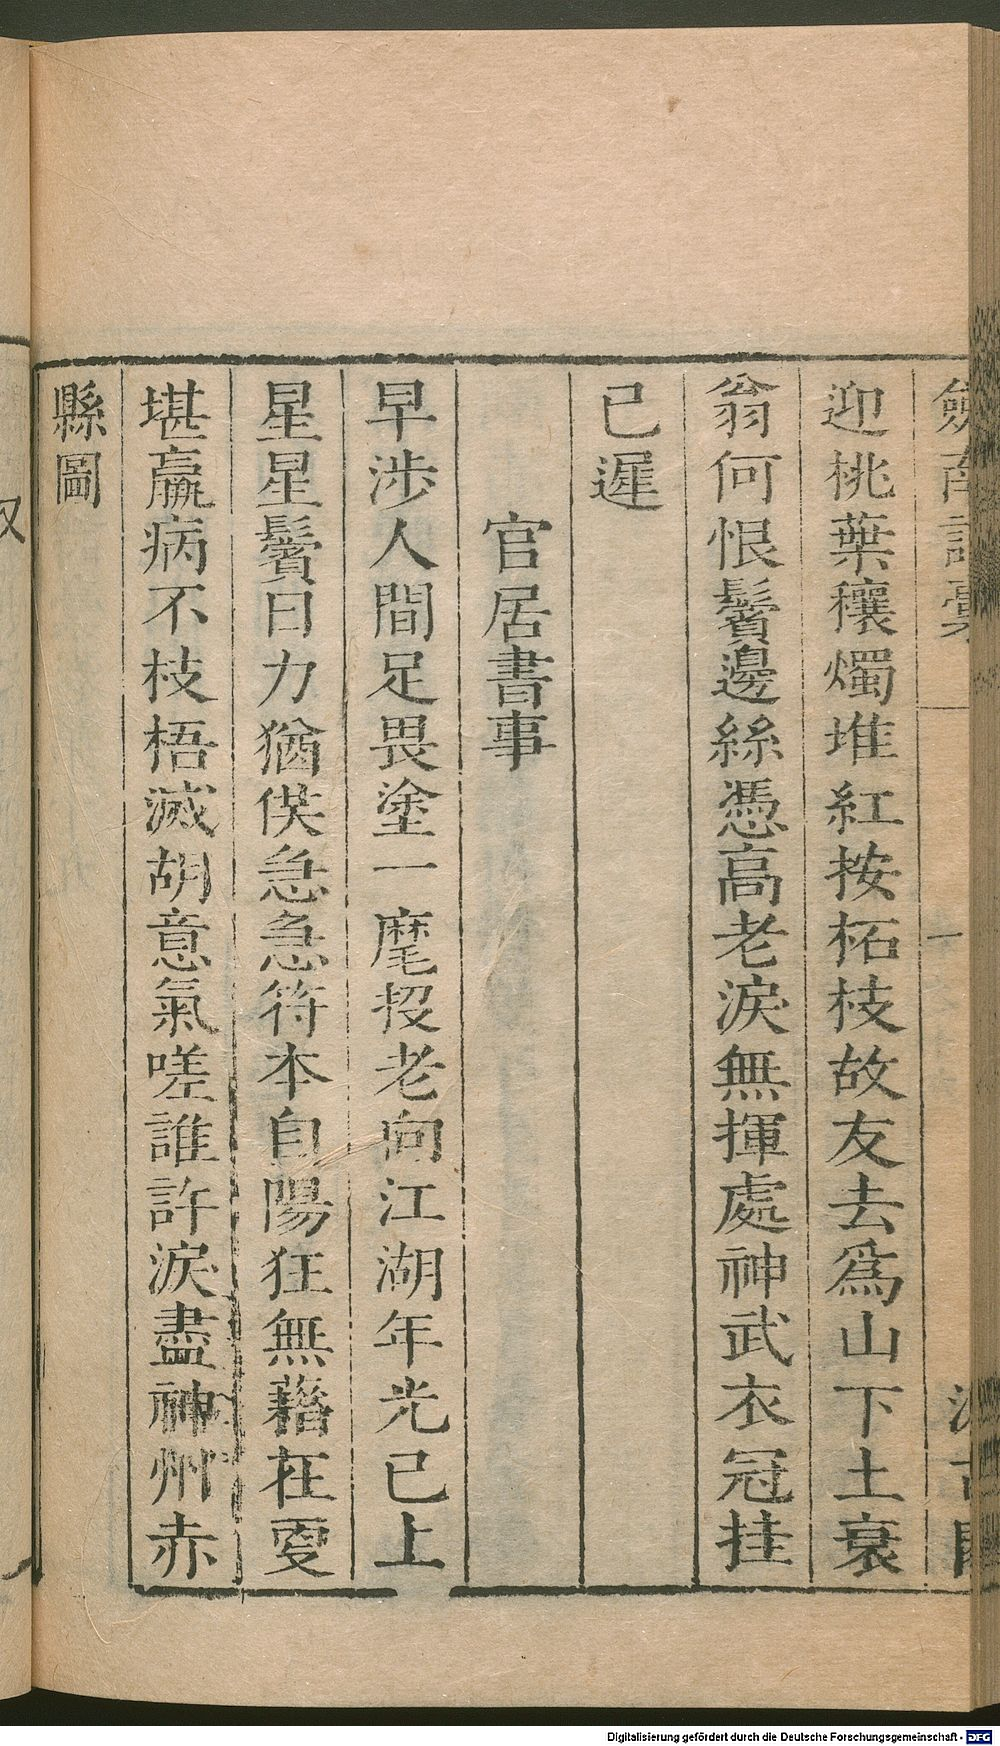 劒南詩藁
迎桃葉穰燭堆紅按柘枝故友去爲山下土衰
翁何恨鬢邊絲憑高老淚無揮處神武衣冠挂
已遲
官居書事
早涉人間足畏塗一麾投老向江湖年光已上
星星鬢日力猶供急急符本自陽狂無藉在更
堪羸病不枝梧滅胡意氣嗟誰許淚盡神州赤
縣圖
Digitalisierung gefördert durch die Deutsche Forschungsgemeinschaft - DFG